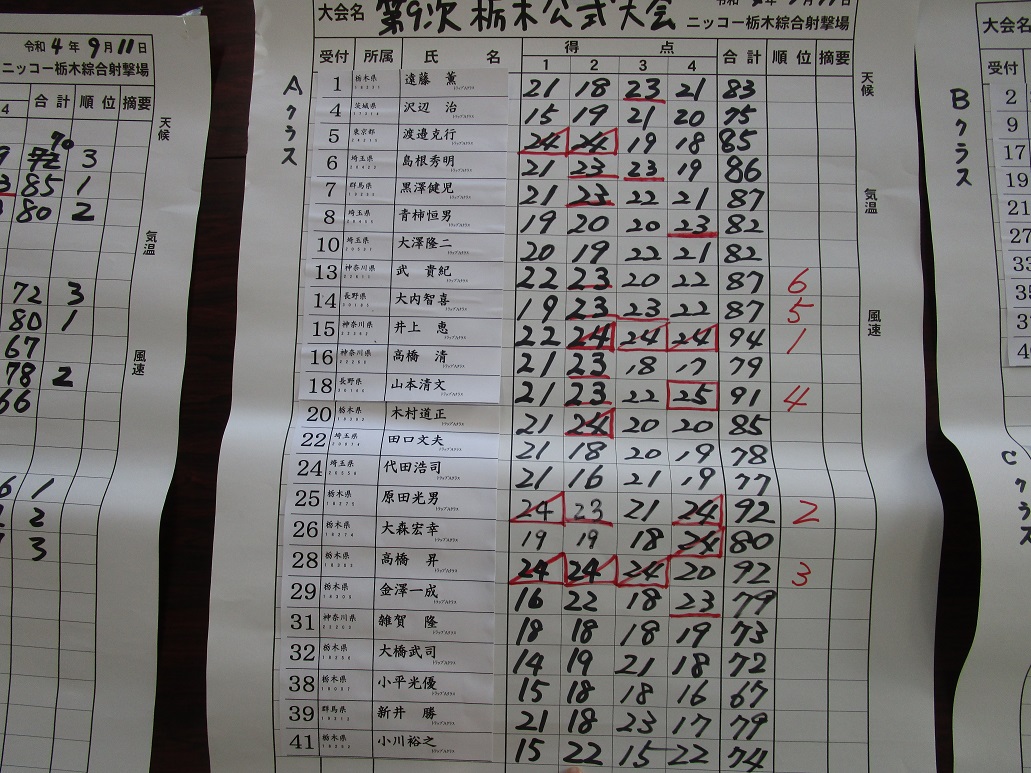 令和4年9月11日
ニッコー栃木綜合射撃場
4 合計 順位 摘要
天候
70
3
85 1
80 2
気温
72 3
80 1
67
風速
78 2
66
1
2
3
大会名 第9次栃木公式大会
ニッコー栃木綜合射撃場
受付 所属 氏名 得点 合計 順位 摘要
1 2 3 4
Aクラス
天候
気温
風速
1 栃木県 遠藤 薫 21 18 23 21 83
4 茨城県 沢辺 治 15 19 21 20 75
5 東京都 渡邉克行 24 24 19 18 85
6 埼玉県 島根秀明 21 23 23 19 86
7 群馬県 黒澤健児 21 23 22 21 87
8 埼玉県 青柿恒男 19 20 20 23 82
10 埼玉県 大澤隆二 20 19 22 21 82
13 神奈川県 武 貴紀 22 23 20 22 87 6
14 長野県 大内智喜 19 23 23 22 87 5
15 神奈川県 井上 恵 22 24 24 24 94 1
16 神奈川県 高橋 清 21 23 18 17 79
18 長野県 山本清文 21 23 22 25 91 4
20 栃木県 木村道正 21 24 20 20 85
22 埼玉県 田口文夫 21 18 20 19 78
24 埼玉県 代田浩司 21 16 21 19 77
25 栃木県 原田光男 24 23 21 24 92 2
26 栃木県 大森宏幸 19 19 18 24 80
28 栃木県 高橋 昇 24 24 24 20 92 3
29 栃木県 金澤一成 16 22 18 23 79
31 神奈川県 雑賀 隆 18 18 18 19 73
32 栃木県 大橋武司 14 19 21 18 72
38 栃木県 小平光優 15 18 18 16 67
39 群馬県 新井 勝 21 18 23 17 79
41 栃木県 小川裕之 15 22 15 22 74
大会名
受付
Bクラス
2
9
17
19
21
27
33
35
Cクラス